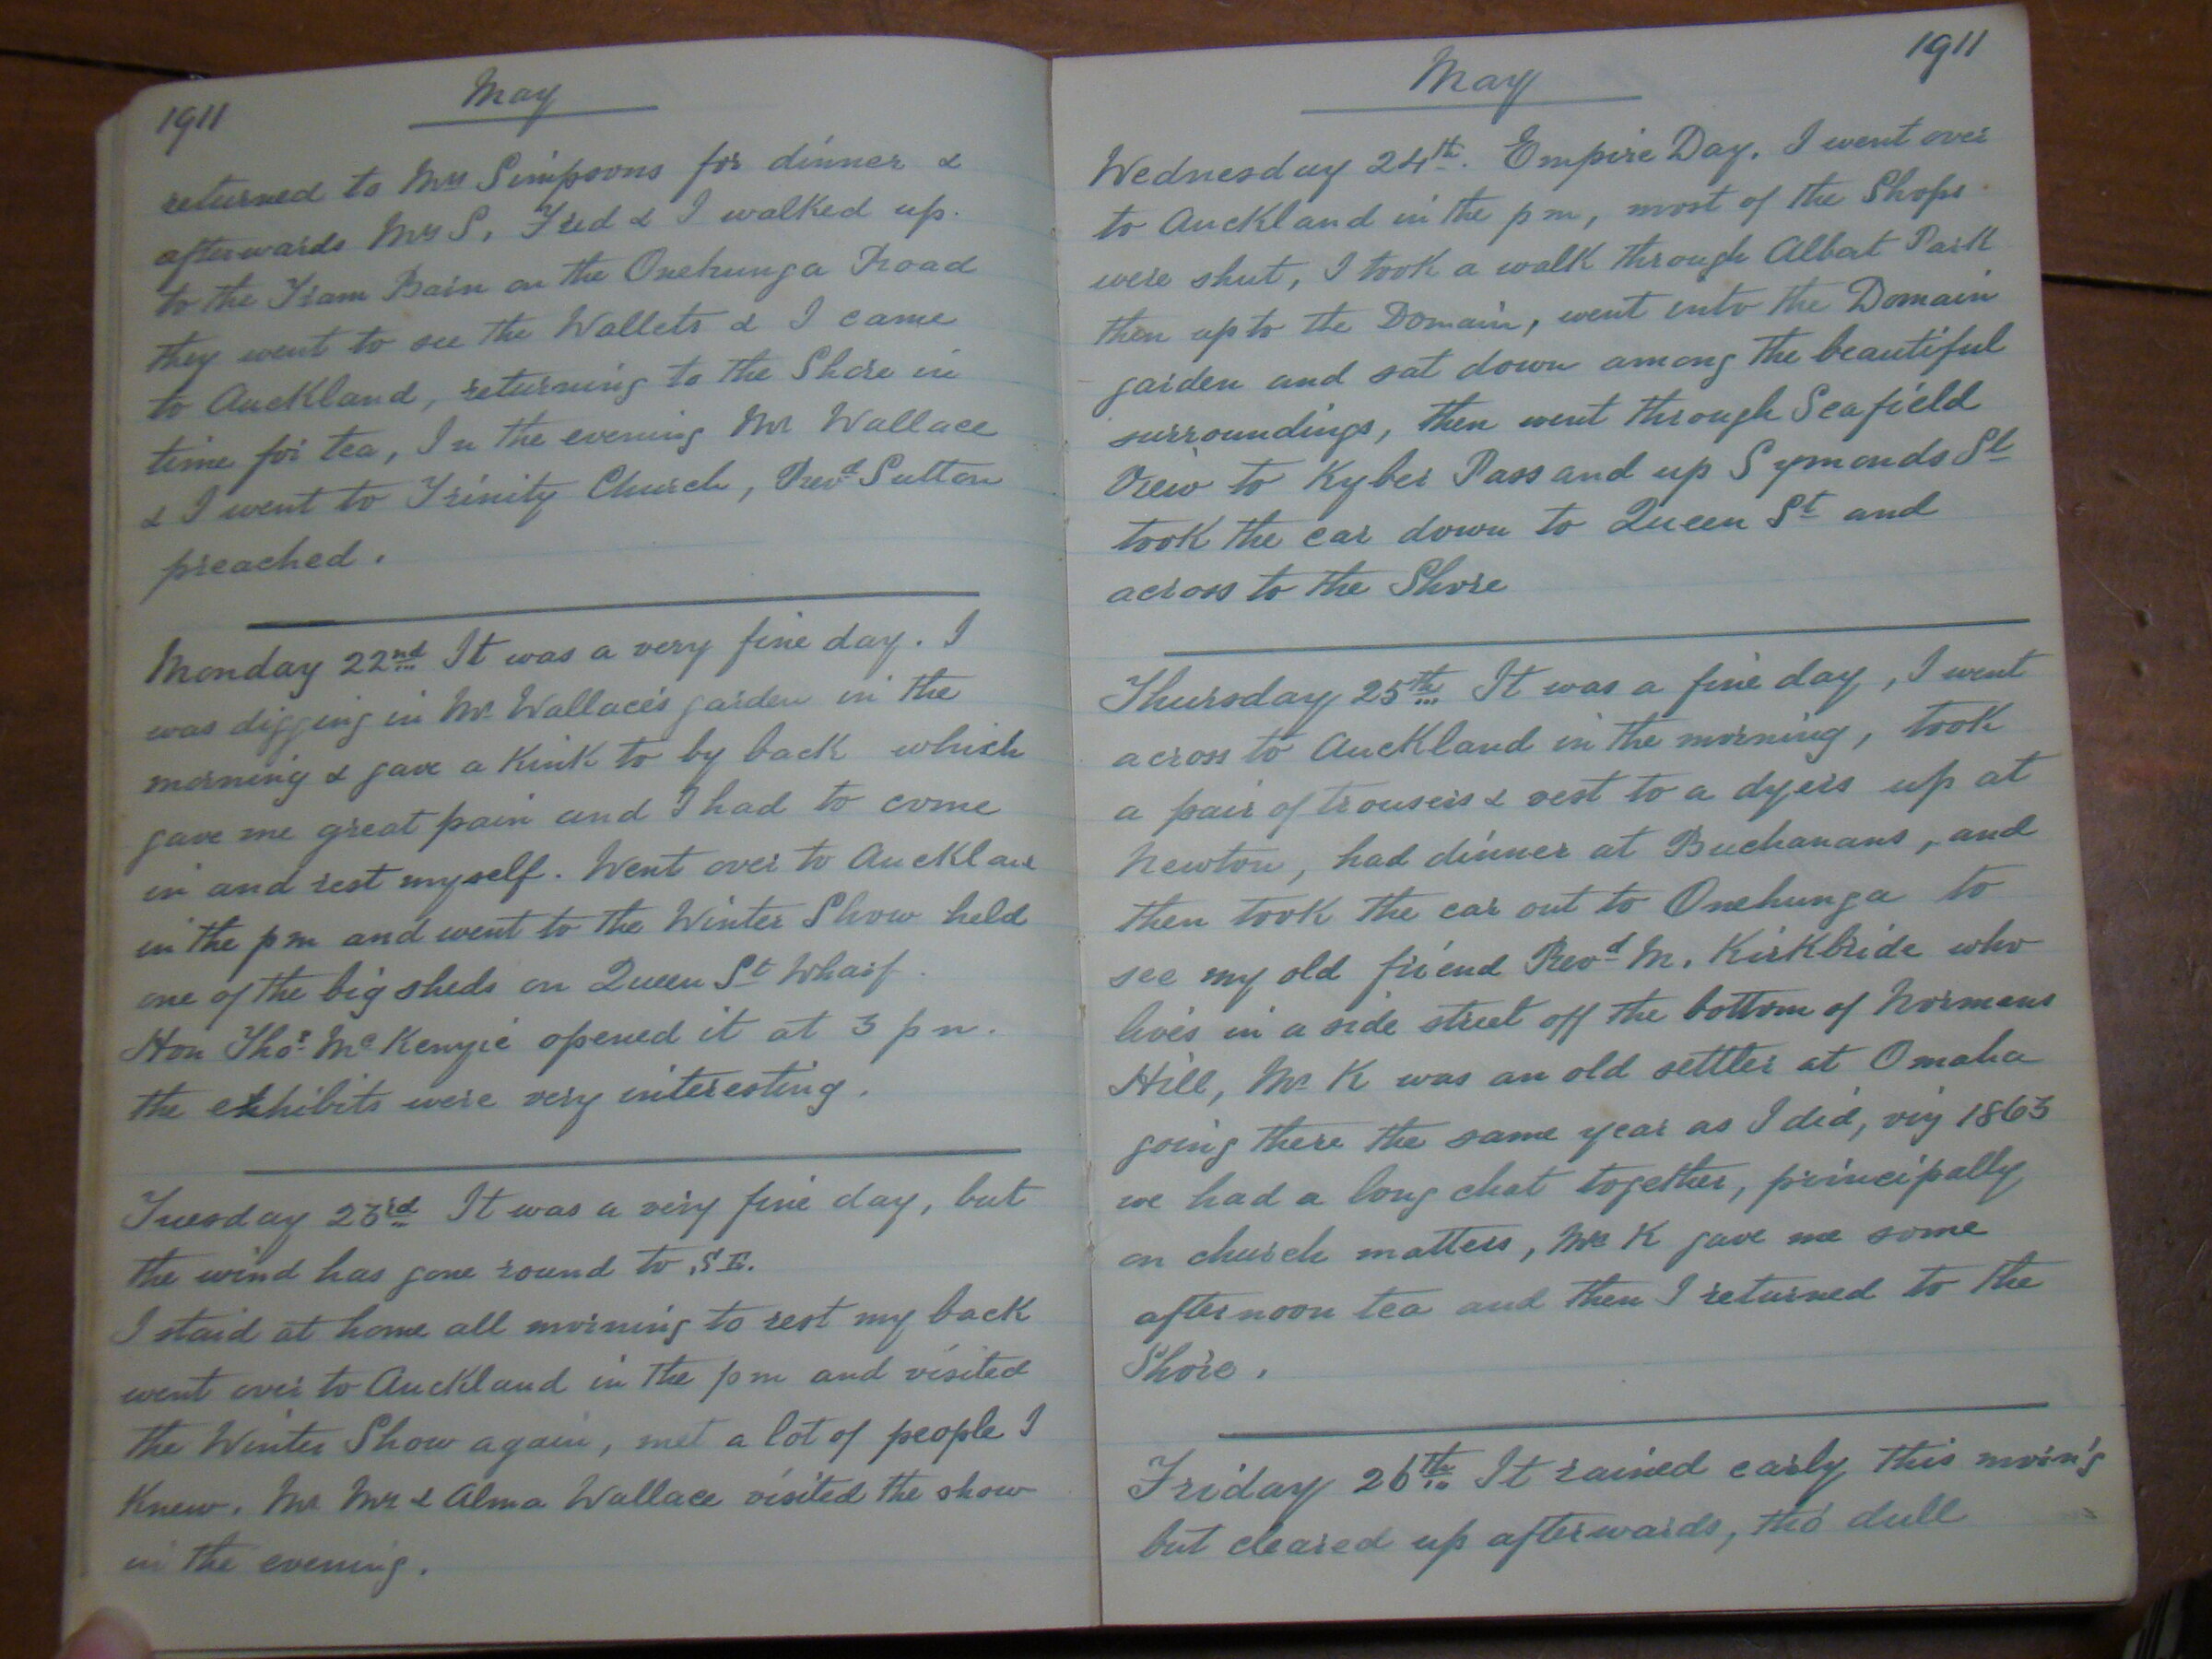 1911 May
returned to Mrs Simpsons for dinner &
afterwards Mrs S, Fred & I walked up
to the Tram Barn on the Onehunga Road
they went to see the Wallets & I came
to Auckland, returning to the Shore in
time for tea, In the evening Mr Wallace
& I went to Trinity Church, Revd Sutton
preached.
Monday 22nd It was a very fine day. I
was digging in Mr Wallace's garden in the
morning & gave a Kink to by back which
gave me great pain and I had to come
in and rest myself. Went over to Auckland
in the pm and went to the Winter Show held
one of the big sheds on Queen St Wharf.
Hon Thos McKenzie opened it at 3 pm.
the exhibits were very interesting.
Tuesday 23rd It was a very fine day, but
the wind has gone round to S E.
I staid at home all morning to rest my back
went over to Auckland in the pm and visited
the Winter Show again, met a lot of people I
Knew. Mr Mrs & Alma Wallace visited the show
in the evening.
May 1911
Wednesday 24th. Empire Day. I went over
to Auckland in the pm, most of the Shops
were shut, I took a walk through Albert Park
then up to the Domain, went into the Domain
garden and sat down among the beautiful
surroundings, then went through Seafield
View to Kyber Pass and up Symonds St
took the car down to Queen St and
across to the Shore
Thursday 25th It was a fine day, I went
across to Auckland in the morning, took
a pair of trousers & vest to a dyers up at
Newton, had dinner at Buchanans, and
then took the car out to Onehunga to
see my old friend Revd M. Kirkbride who
lives in a side street off the bottom of Normans
Hill, Mr K was an old settler at Omaha
going there the same year as I did, viz 1863
we had a long chat together, principally
on church matters, Mrs K gave me some
afternoon tea and then I returned to the
Shore.
Friday 26th It rained early this morn'g
but cleared up afterwards, tho' dull